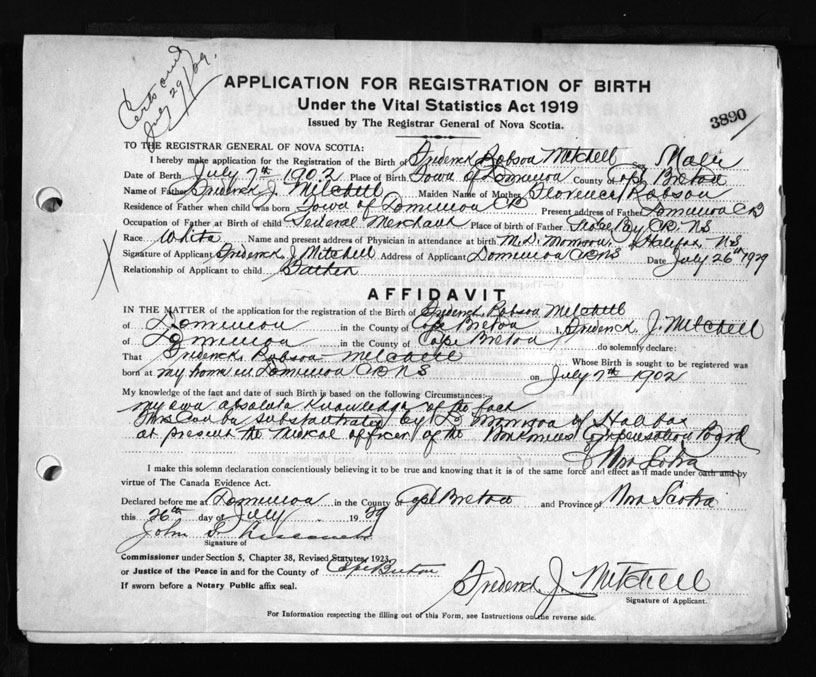 Certs and
July 29/29.
APPLICATION FOR REGISTRATION OF BIRTH
Under the Vital Statistics Act 1919
Issued by The Registrar General of Nova Scotia.
3890
TO THE REGISTRAR GENERAL OF NOVA SCOTIA:
I hereby make application for the Registration of the Birth of Frederick Robson Mitchell Sex Male
Date of Birth July 7th 1902 Place of Birth Town of Dominion County of Cape Breton
Name of Father Frederick J. Mitchell Maiden Name of Mother Florence Robson
Residence of Father when child was born Town of Dominion CB Present address of Father Dominion CB
Occupation of Father at Birth of child General Merchant Place of birth of Father Glace Bay CB. NS
Race White Name and present address of Physician in attendance at birth M.D. Morrison. Halifax NS
Signature of Applicant Frederick J Mitchell Address of Applicant Dominion CB NS Date July 26th 1929
Relationship of Applicant to child Father
AFFIDAVIT
IN THE MATTER of the application for the registration of the Birth of Frederick Robson Mitchell
of Dominion in the County of Cape Breton I, Frederick J. Mitchell
of Dominion in the County of Cape Breton do solemnly declare:
That Frederick Robson Mitchell Whose Birth is sought to be registered was
born at my home in Dominion CB NS on July 7th 1902
My knowledge of the fact and date of such Birth is based on the following Circumstances:-
my own absolute knowledge of the fact
This can be substantiated by Dr Morrison of Halifax
at present the Medical officer of the Workmens Compensation Board
of Nova Scotia
I make this solemn declaration conscientiously believing it to be true and knowing that it is of the same force and effect as if made under oath and by
virtue of The Canada Evidence Act.
Declared before me at Dominion in the County of Cape Breton and Province of Nova Scotia
this 26th day of July 1929
John S.
Signature of
Commissioner under Section 5, Chapter 38, Revised Statutes, 1923,
or Justice of the Peace in and for the County of Cape Breton
If sworn before a Notary Public affix seal.
Frederick J. Mitchell
Signature of Applicant.
For Information respecting the filling out of this Form, see Instructions on the reverse side.